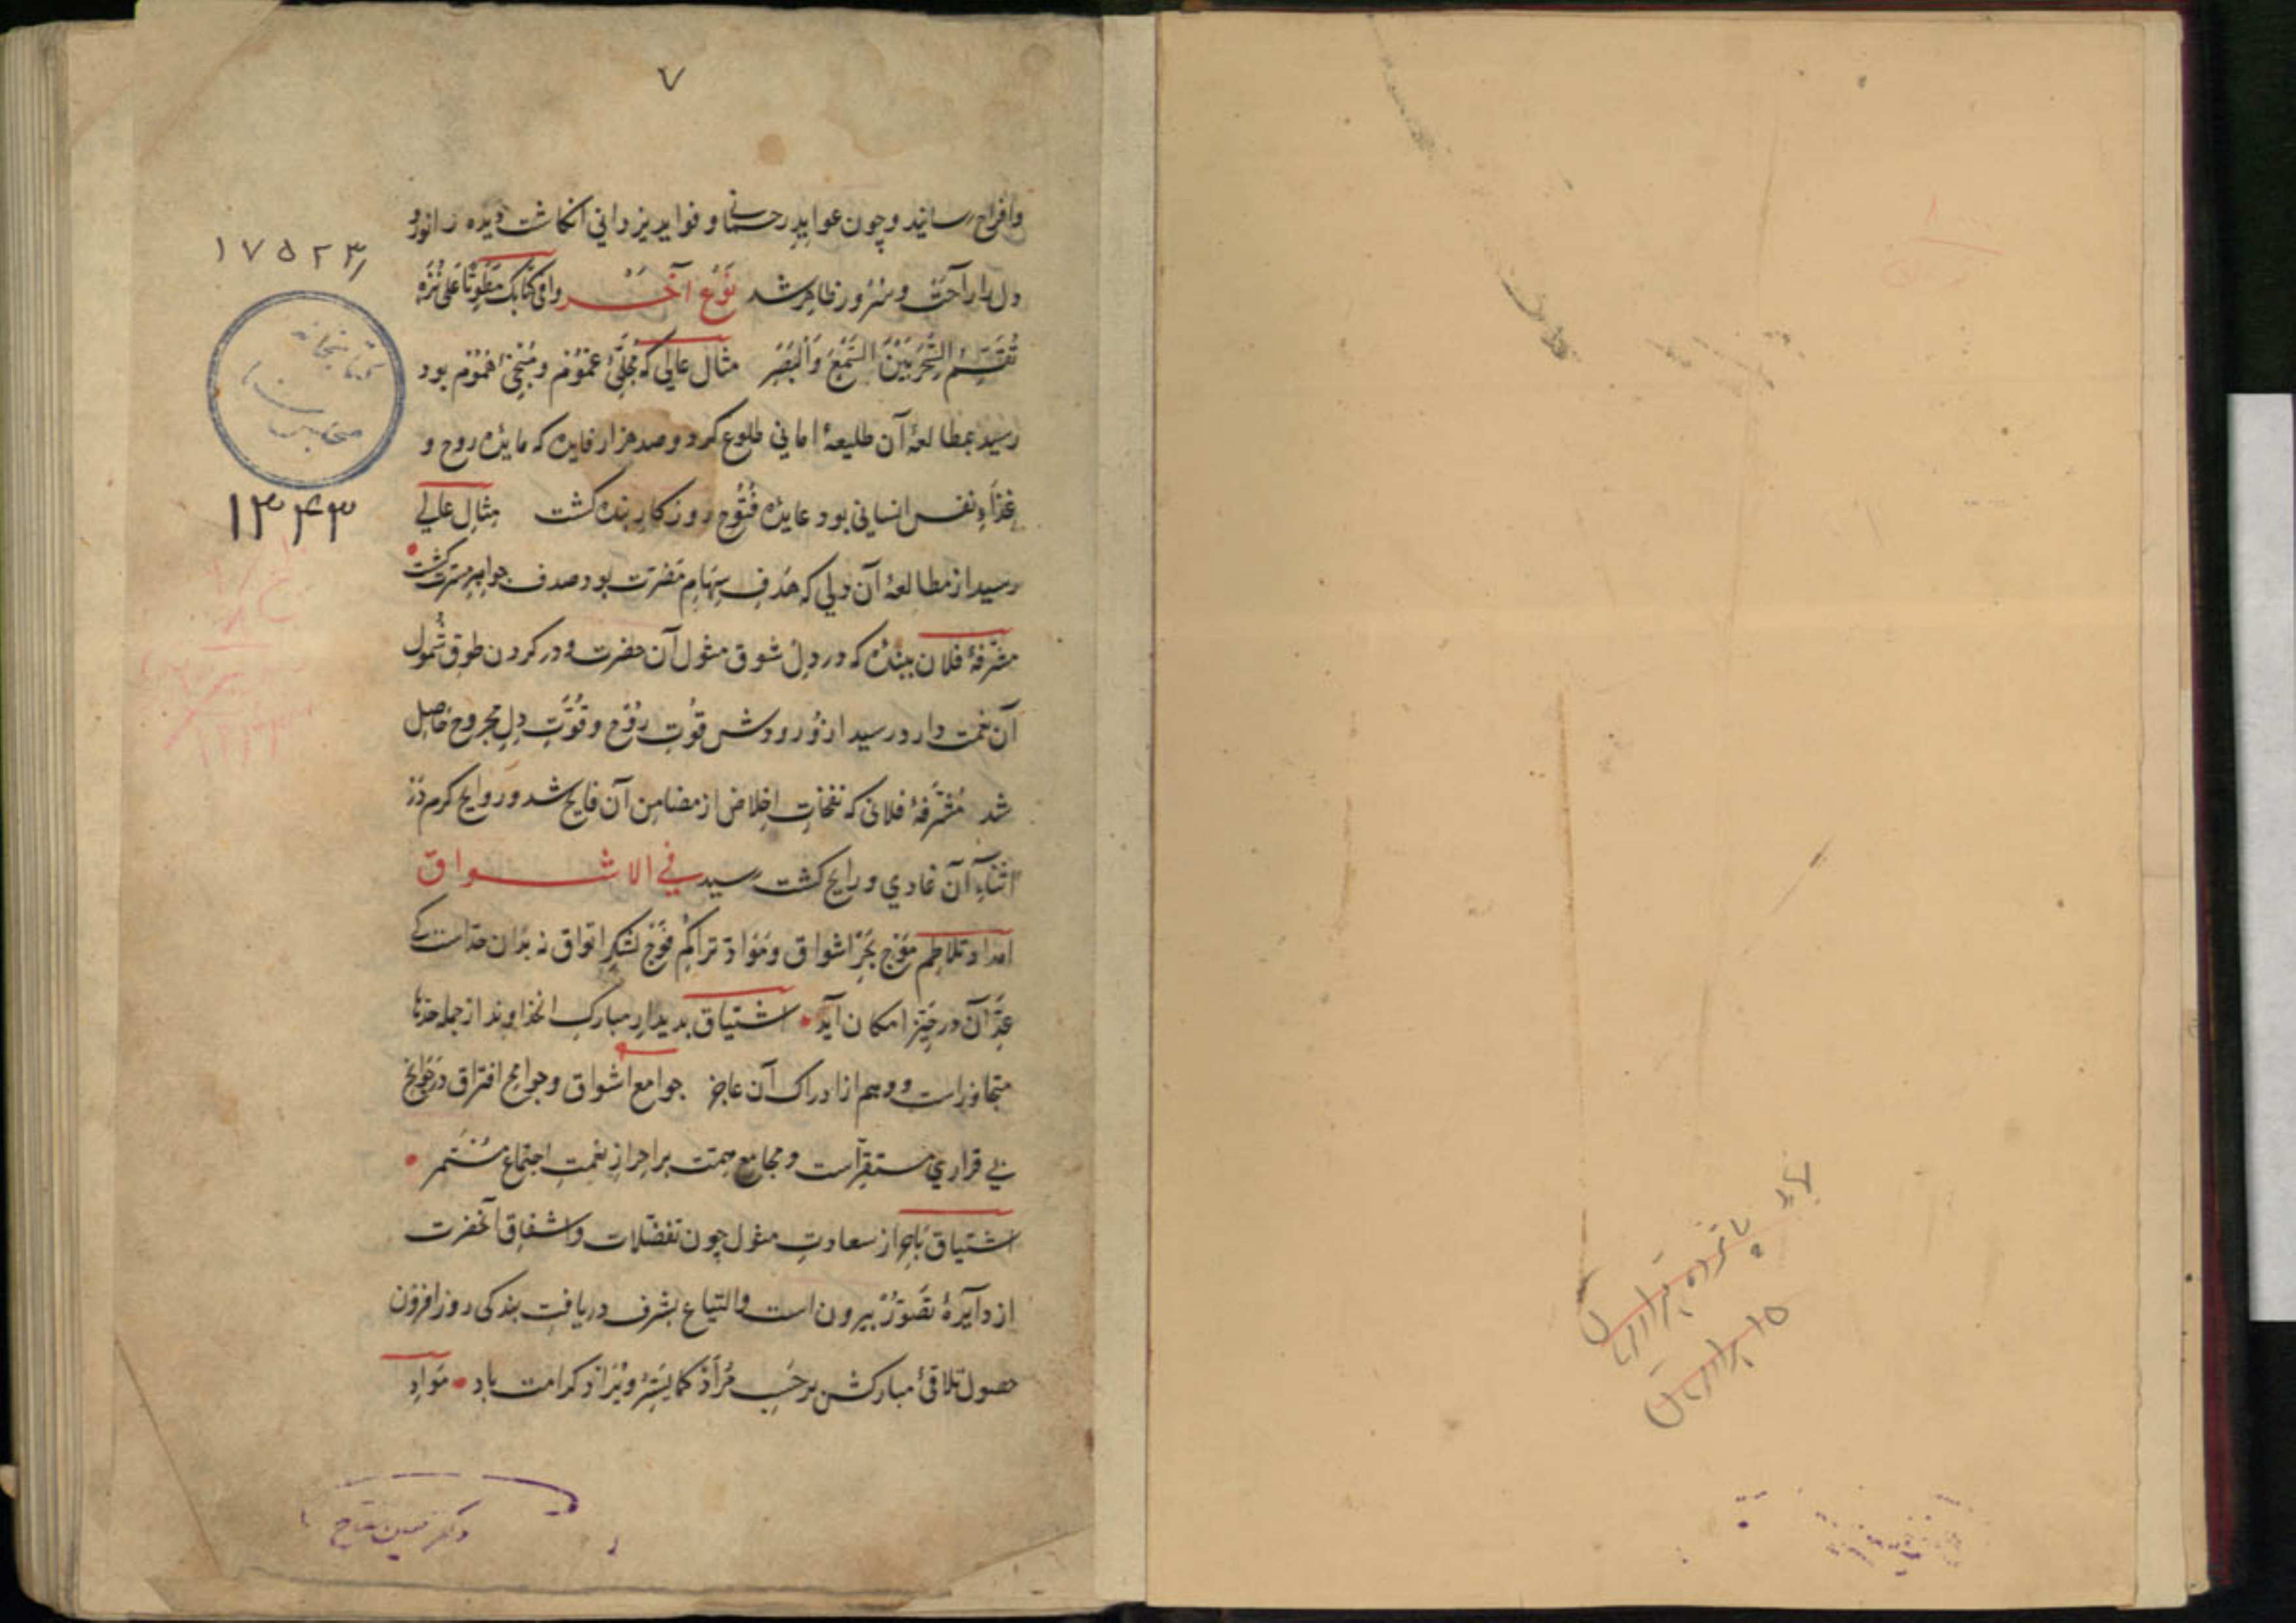 ۷
وافراح رساند و چون عواید رحمانی و فواید یزدانی انکاشت دیده را نور و
دل را راحت و سرور ظاهر شد نوع آخر وافی کتابک مطویا علی نزه
تقسم الحسن بین السمع والبصر مثال عالی که مجلی غموم و منجی هموم بود
رسید بمطالعهٔ آن طلیعهٔ امانی طلوع کرد و صد هزار فایده که مایدهٔ روح و
غذاء نفس انسانی بود عایدهٔ فتوح روزکار بنده کشت مثال عالی
رسید از مطالعهٔ آن دلی که هدف سهام مضرت بود صدف جواهر مسرت کشت
مشرفهٔ فلان ببنده که در دل شوق مثول آن حضرت و در کردن طوق شمول
آن نعمت دارد رسید از ورودش قوت روح و قوّت دل مجروح حاصل
شد مشرفهٔ فلانی که نفحات اخلاص از مضامن آن فایح شد و روایح کرم در
اثناء آن غادی و رایح کشت رسید فی الاشواق
امداد تلاطم موج بحر اشواق و مواد تراکم فوج لشکر اتواق نه بدان حد است کی
عدّ آن در حیز امکان آید اشتیاق بدیدار مبارک انخداوند از جمله حدها
متجاوز است و وهم از ادراک آن عاجز جوامع اشواق و جوامح افتراق در جوانح
بی قراری مستقرّ است و مجامع همت بر احراز نعمت اجتماع مستمر
اشتیاق باحراز سعادت مثول چون تفضلات و اشفاق آنحضرت
از دایرهٔ تصوّر بیرون است و التیاع بشرف دریافت بندکی روز افزون
حصول تلاقی مبارکش بر حسب مراد کما یسرّ و یراد کرامت باد مواد
۱۷۵۲۳
کتابخانه
مجلس
۱۳۴۳
دکتر حسین مفتاح
پانزده
۱۵